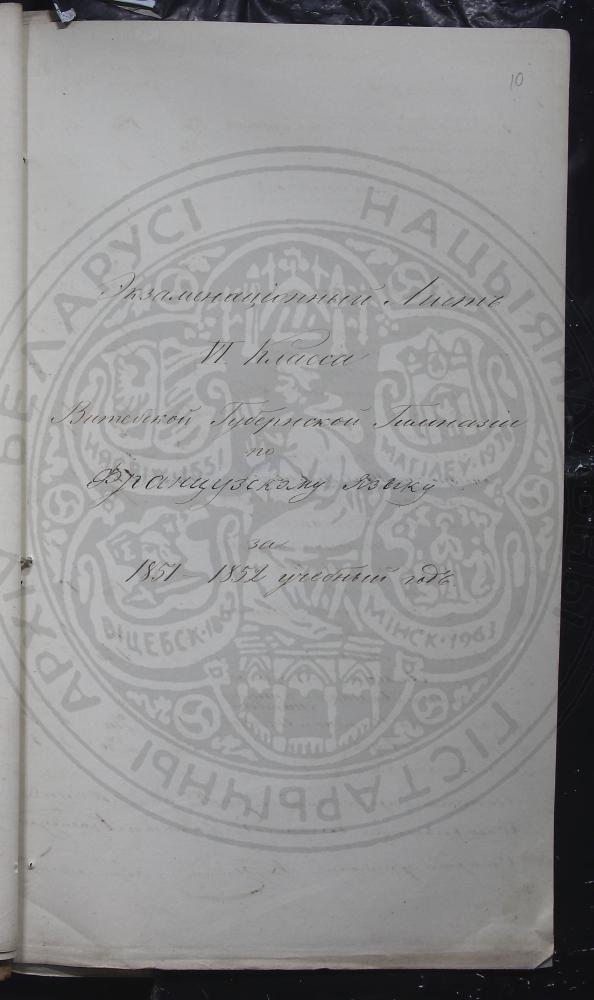 10
Экзаменаціонный Листъ
VI Класса
Витебской Губернской Гимназіи
по
Французскому языку
за
1851 – 1852 учебный годъ
НАЦЫЯНАЛЬНЫ ГІСТАРЫЧНЫ АРХІЎ БЕЛАРУСІ
МАГІЛЁЎ·19
ВІЦЕБСК·18
МІНСК·1963